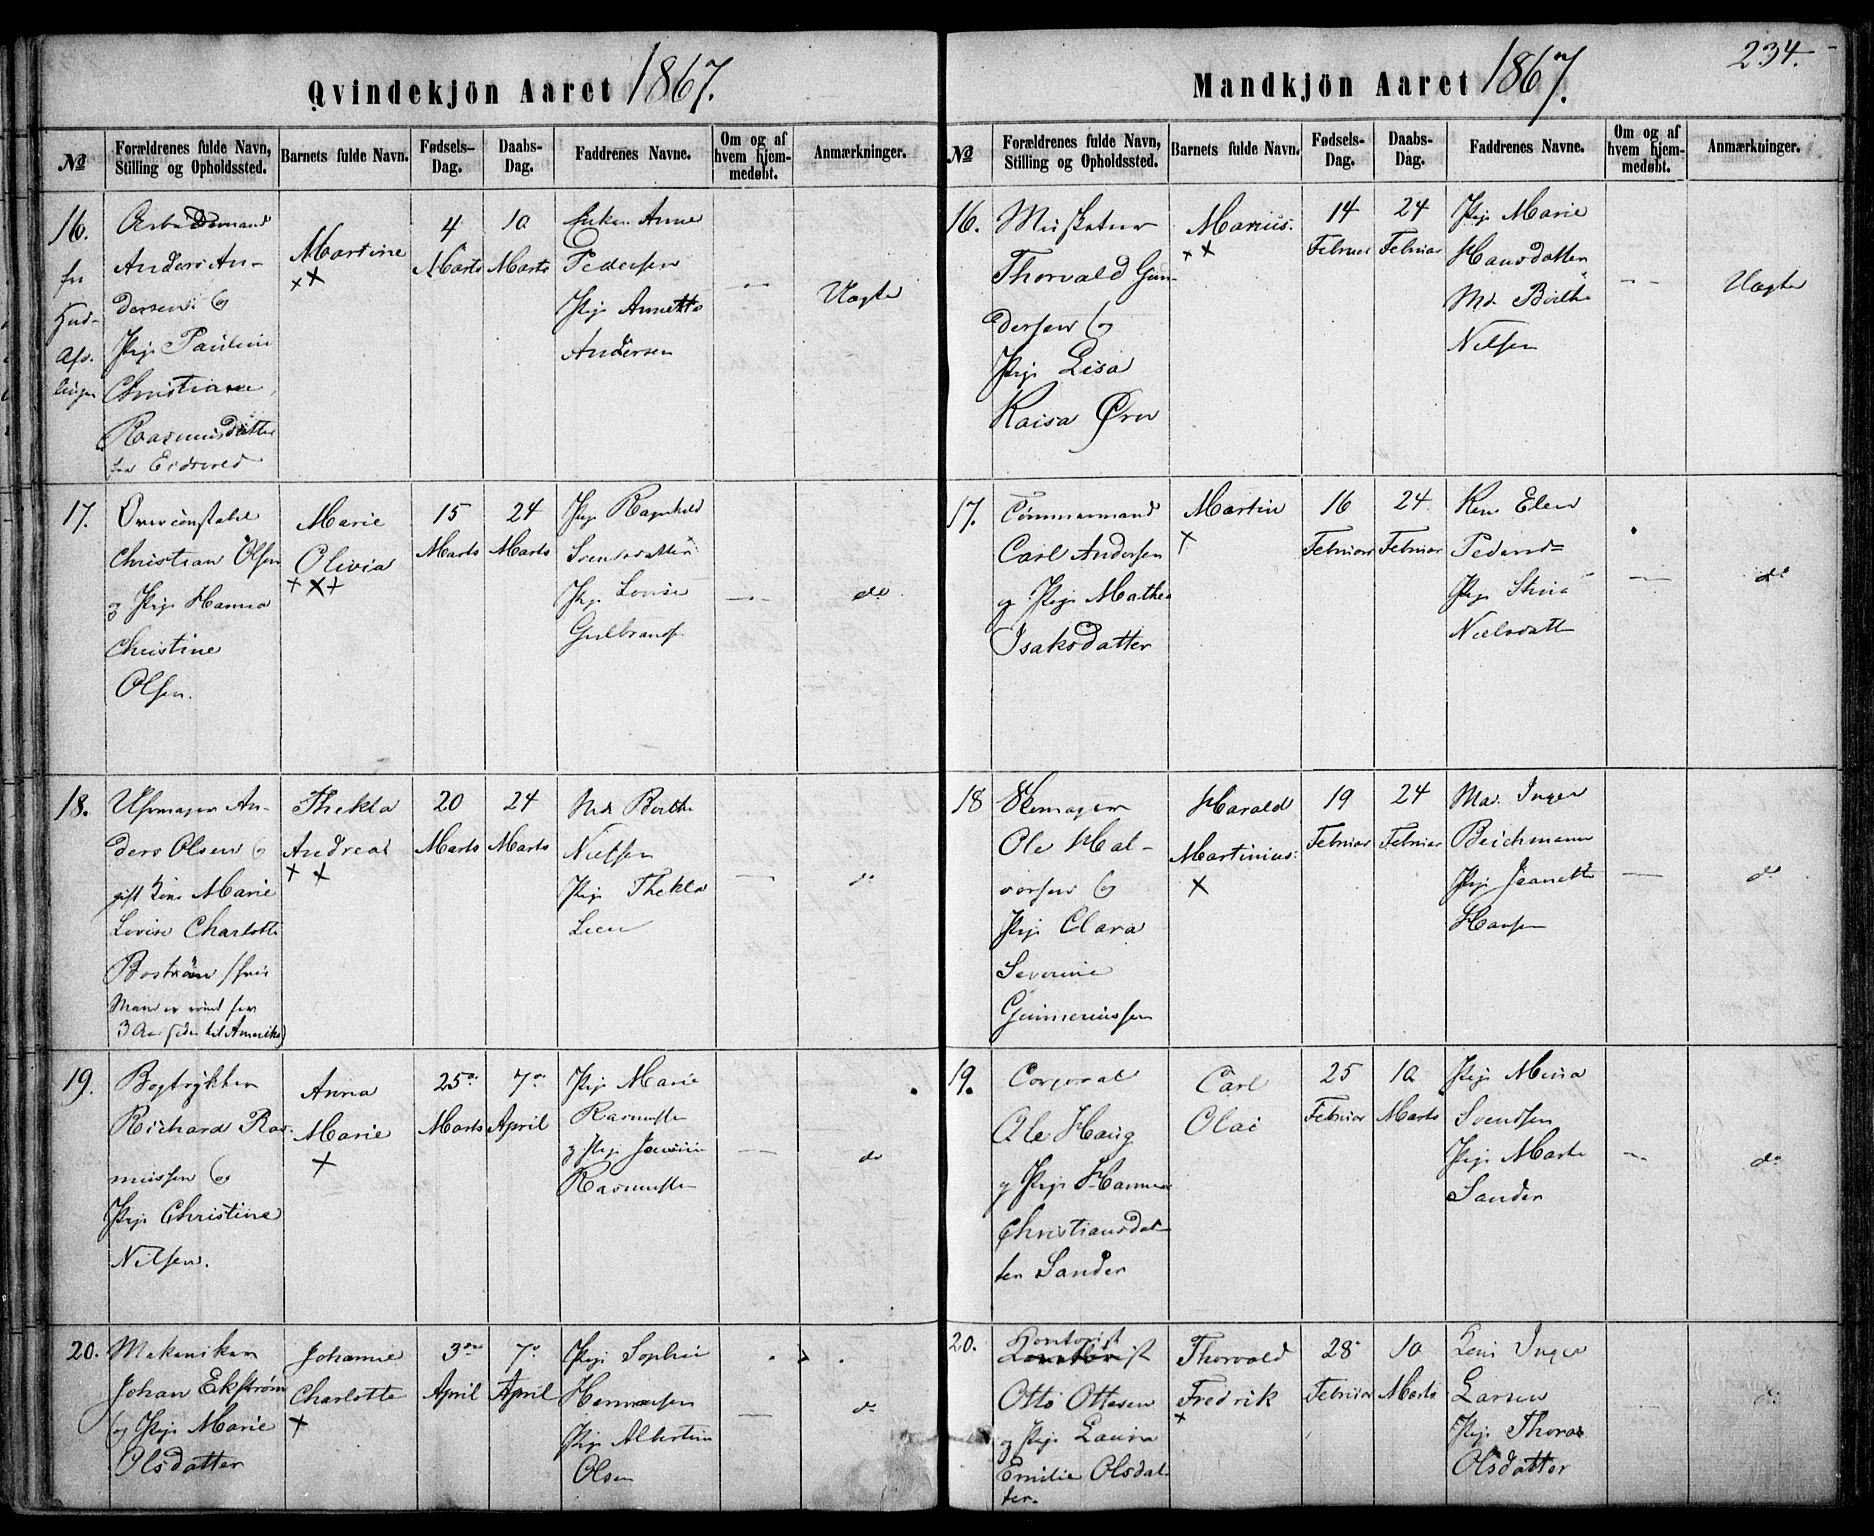 Qvindekjön Aaret 1867.
No
Forældrenes fulde Navn,
Stilling og Opholdssted.
Barnets fulde Navn.
Fødsels-
Dag.
Daabs-
Dag.
Faddrenes Navne.
Om og af
hvem hjem-
medøbt.
Anmærkninger.
16.
fra
Arbeidsmand
Anders An-
dersen og
Pige Pauline
Christiane
Rasmusdatter
fra Eidsvold
Martine
××
4
Marts
10
Marts
Enken Anne
Pedersen
Pige Annette
Andersen
—
Uægte
17.
Overconstabel
Christian Olsen
og Pige Hanna
Christine
Olsen.
Marie
Olivia
+×+
15
Marts
24
Marts
Pige Ragnhild
Svendsdatter
Pige Lovise
Gulbrands
—
do
18.
Uhrmager An-
ders Olsen og
gift Marie
Lovise Charlotte
Boström
Mand er
3 Aar siden til Amerika)
Thekla
Andrea
× ×
20
Marts
24
Marts
Md Berthe
Nielsen
Pige Thekla
Lien
—
do
19.
Bogtrykker
Richard Ras-
mussen og
Pige Christine
Nilsen.
Anna
Marie
×
25de
Marts
7de
April
Pige Marie
Rasmussen
og Pige
Rasmussen
—
do
20.
Mekaniker
Johan Ekström
og Pige Marie
Olsdatter
Johanne
Charlotte
×
3die
April
7de
April
Pige Sophie
Hermansen
Pige Albertine
Olsen
—
do
234.
Mandkjön Aaret 1867.
No
Forældrenes fulde Navn,
Stilling og Opholdssted.
Barnets fulde Navn.
Fødsels-
Dag.
Daabs-
Dag.
Faddrenes Navne.
Om og af
hvem hjem-
medøbt.
Anmærkninger.
16.
Musketeer
Thorvald Gun-
dersen og
Pige Lisa
Kaisa Ørn
Marius.
××
14
Februar
24
Februar
Pige Marie
Hansdatter
Md Birthe
Nilsen
—
Uægte
17.
Tømmermand
Carl Andersen
og Pige Mathea
Isaksdatter
Martin
×
16
Februar
24
Februar
Kone Elen
Pedersd=
Pige Stina
Nielsdatt
—
do
18
Skomager
Ole Hal-
vorsen og
Pige Clara
Severine
Gunneriussen
Harald
Martinius.
×
19
Februar
24
Februar
Mad. Inger
Beichmann
Pige Jeanette
Hansen
—
do
19.
Corporal
Ole Haug
og Pige Hanna
Christiansdat-
ter Sander
Carl
Olai
25
Februar
10
Marts
Pige Mina
Svendsen
Pige Marte
Sander
—
do
20.
Kontorist
Otto Ottesen
og Pige Laura
Emilie Olsdat-
ter.
Thorvald
Fredrik
×
28
Februar
10
Marts
Inger
Larsen
Pige Thora
Olsdatter
do